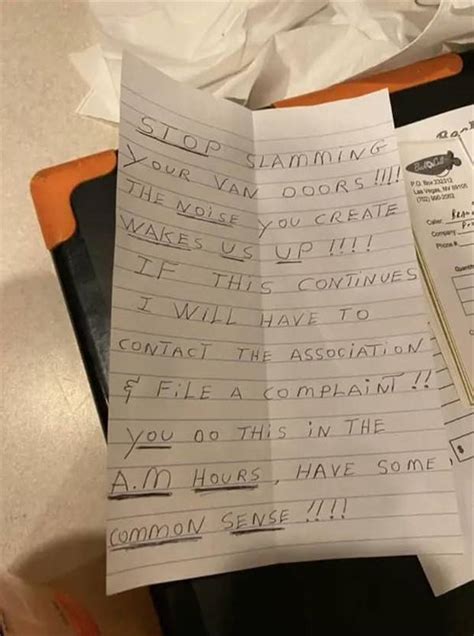 STOP SLAMMING
YOUR VAN DOORS!!!!
THE NOISE YOU CREATE
WAKES US UP !!!!
IF THIS CONTINUES
I WILL HAVE TO
CONTACT THE ASSOCIATION
& FILE A COMPLAINT!!
YOU DO THIS IN THE
A.M HOURS, HAVE SOME
COMMON SENSE !!!!
Las Vegas, NV
Caller:
Company
Phone #